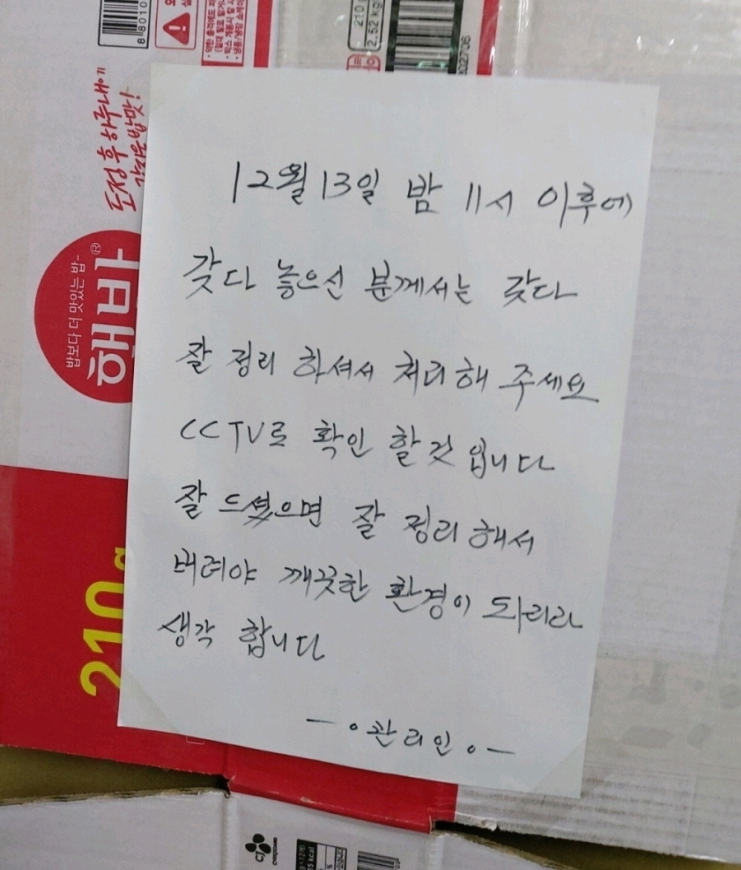 도정 후 하루내에
햇반
밥보다 더 맛있는 밥-
210g
2.52kg
CJ
12월 13일 밤 11시 이후에
갖다 놓으신 분께서는 갖다
잘 정리 하셔서 처리해 주세요
CCTV로 확인 할것 입니다
잘 드셨으면 잘 정리해서
버려야 깨끗한 환경이 되리라
생각 합니다
관리인